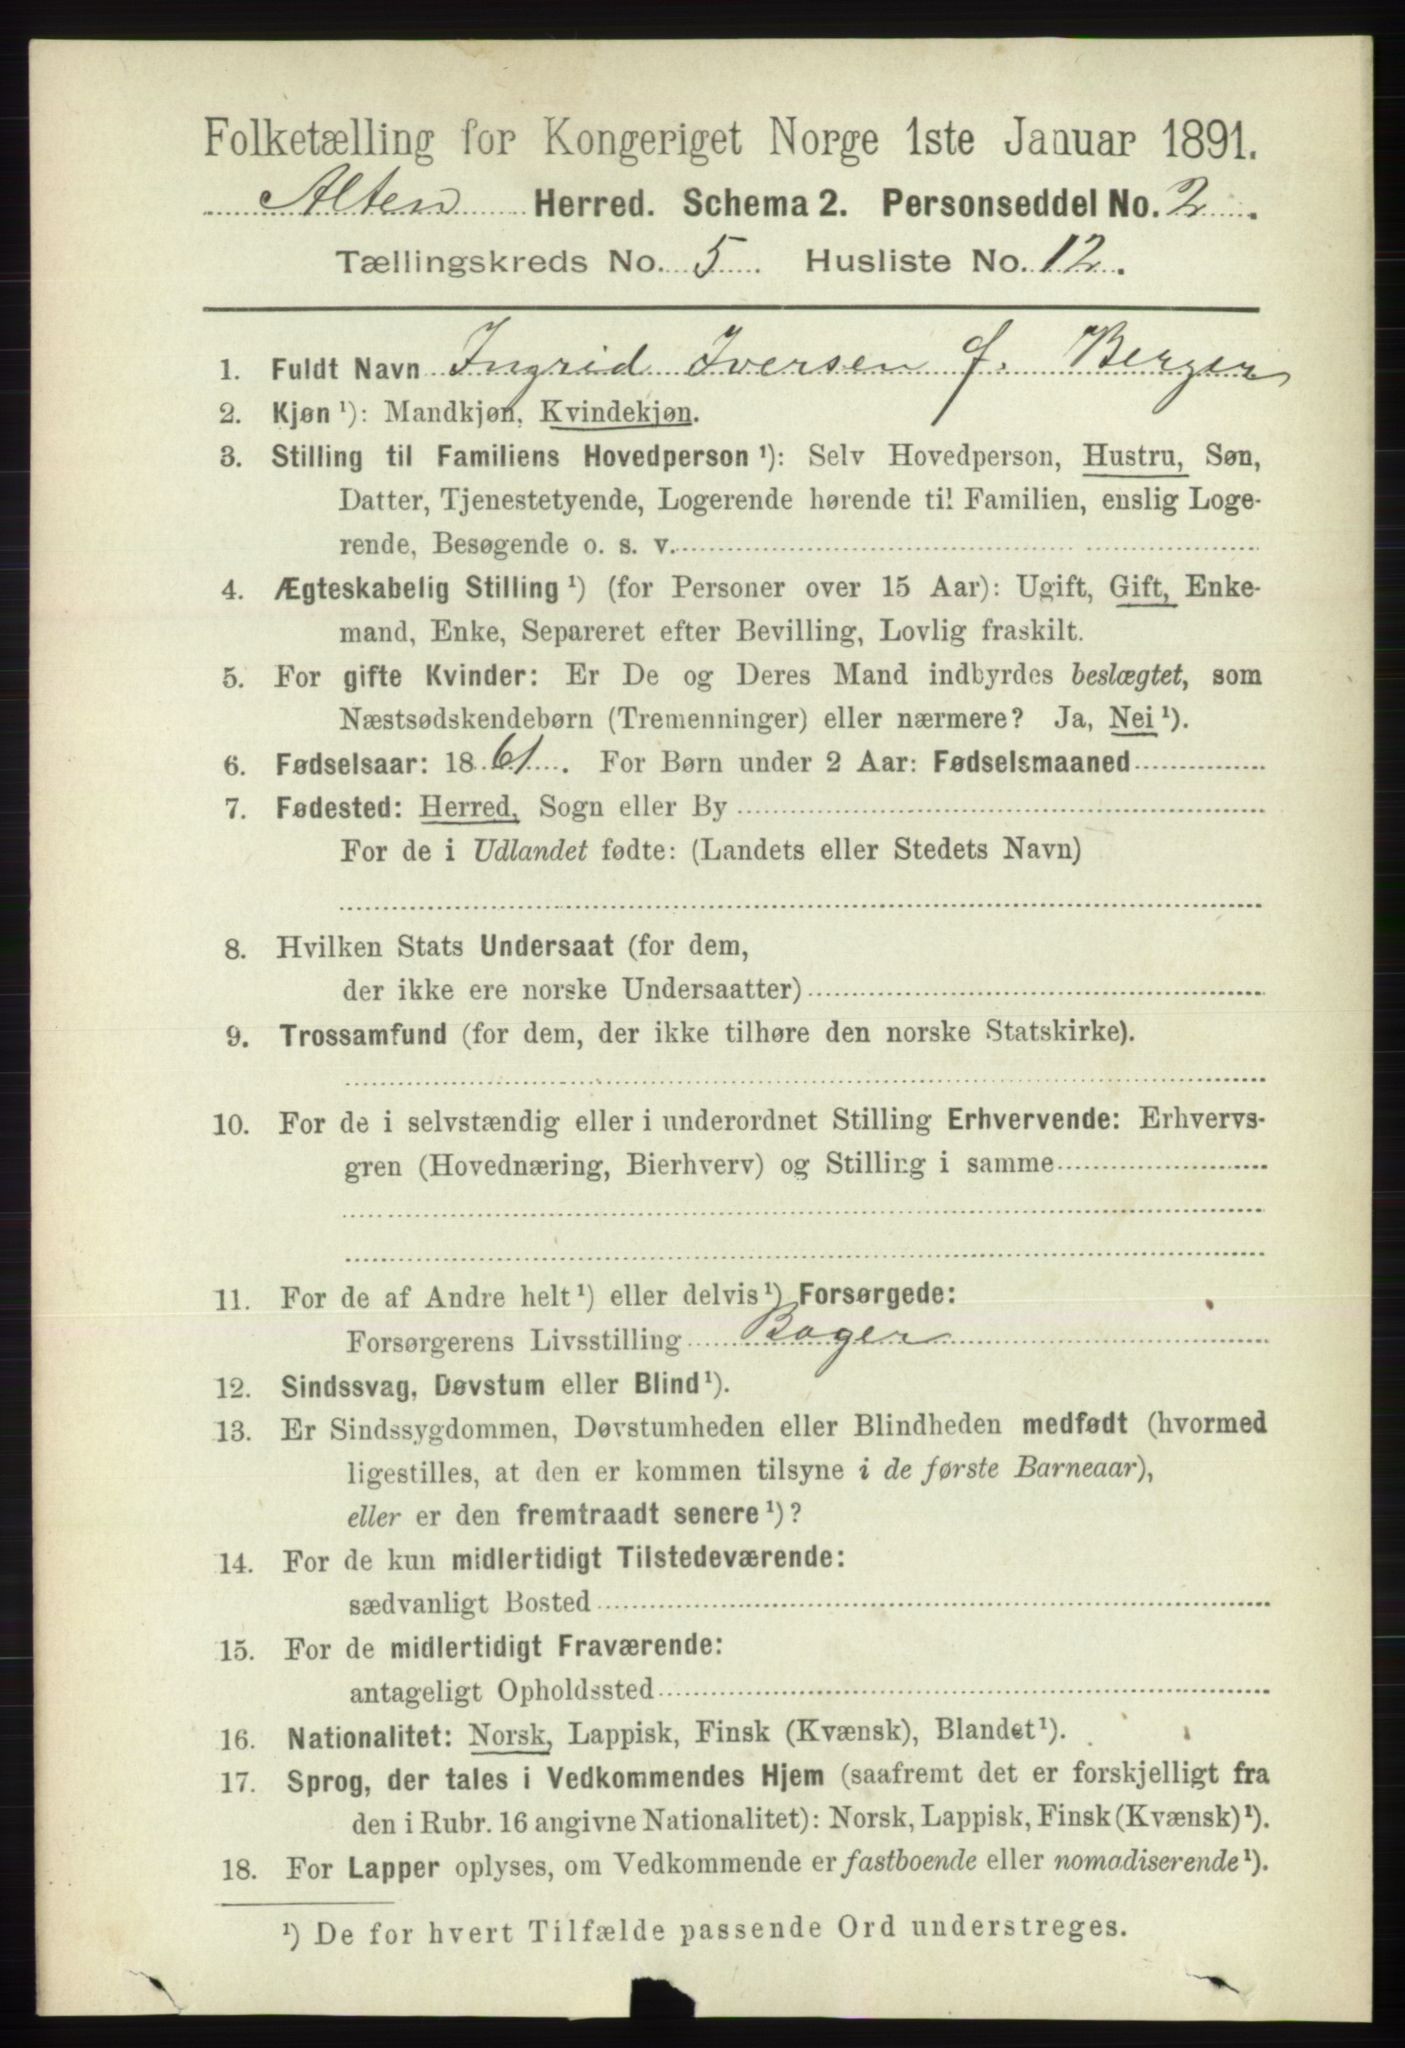 Folketælling for Kongeriget Norge 1ste Januar 1891.
Alten Herred. Schema 2. Personseddel No. 2.
Tællingskreds No. 5. Husliste No. 12.
1. Fuldt Navn Ingrid Iversen f. Berger
2. Kjøn ¹): Mandkjøn, Kvindekjøn.
3. Stilling til Familiens Hovedperson ¹): Selv Hovedperson, Hustru, Søn,
Datter, Tjenestetyende, Logerende hørende til Familien, enslig Loge-
rende, Besøgende o. s. v.
4. Ægteskabelig Stilling ¹) (for Personer over 15 Aar): Ugift, Gift, Enke-
mand, Enke, Separeret efter Bevilling, Lovlig fraskilt.
5. For gifte Kvinder: Er De og Deres Mand indbyrdes beslægtet, som
Næstsødskendebørn (Tremenninger) eller nærmere? Ja, Nei ¹).
6. Fødselsaar: 1861. For Børn under 2 Aar: Fødselsmaaned
7. Fødested: Herred, Sogn eller By
For de i Udlandet fødte: (Landets eller Stedets Navn)
8. Hvilken Stats Undersaat (for dem,
der ikke ere norske Undersaatter)
9. Trossamfund (for dem, der ikke tilhøre den norske Statskirke).
10. For de i selvstændig eller i underordnet Stilling Erhvervende: Erhvervs-
gren (Hovednæring, Bierhverv) og Stilling i samme
11. For de af Andre helt ¹) eller delvis ¹) Forsørgede:
Forsørgerens Livsstilling Bager
12. Sindssvag, Døvstum eller Blind ¹).
13. Er Sindssygdommen, Døvstumheden eller Blindheden medfødt (hvormed
ligestilles, at den er kommen tilsyne i de første Barneaar),
eller er den fremtraadt senere ¹)?
14. For de kun midlertidigt Tilstedeværende:
sædvanligt Bosted
15. For de midlertidigt Fraværende:
antageligt Opholdssted
16. Nationalitet: Norsk, Lappisk, Finsk (Kvænsk), Blandet ¹).
17. Sprog, der tales i Vedkommendes Hjem (saafremt det er forskjelligt fra
den i Rubr. 16 angivne Nationalitet): Norsk, Lappisk, Finsk (Kvænsk) ¹).
18. For Lapper oplyses, om Vedkommende er fastboende eller nomadiserende ¹).
¹) De for hvert Tilfælde passende Ord understreges.